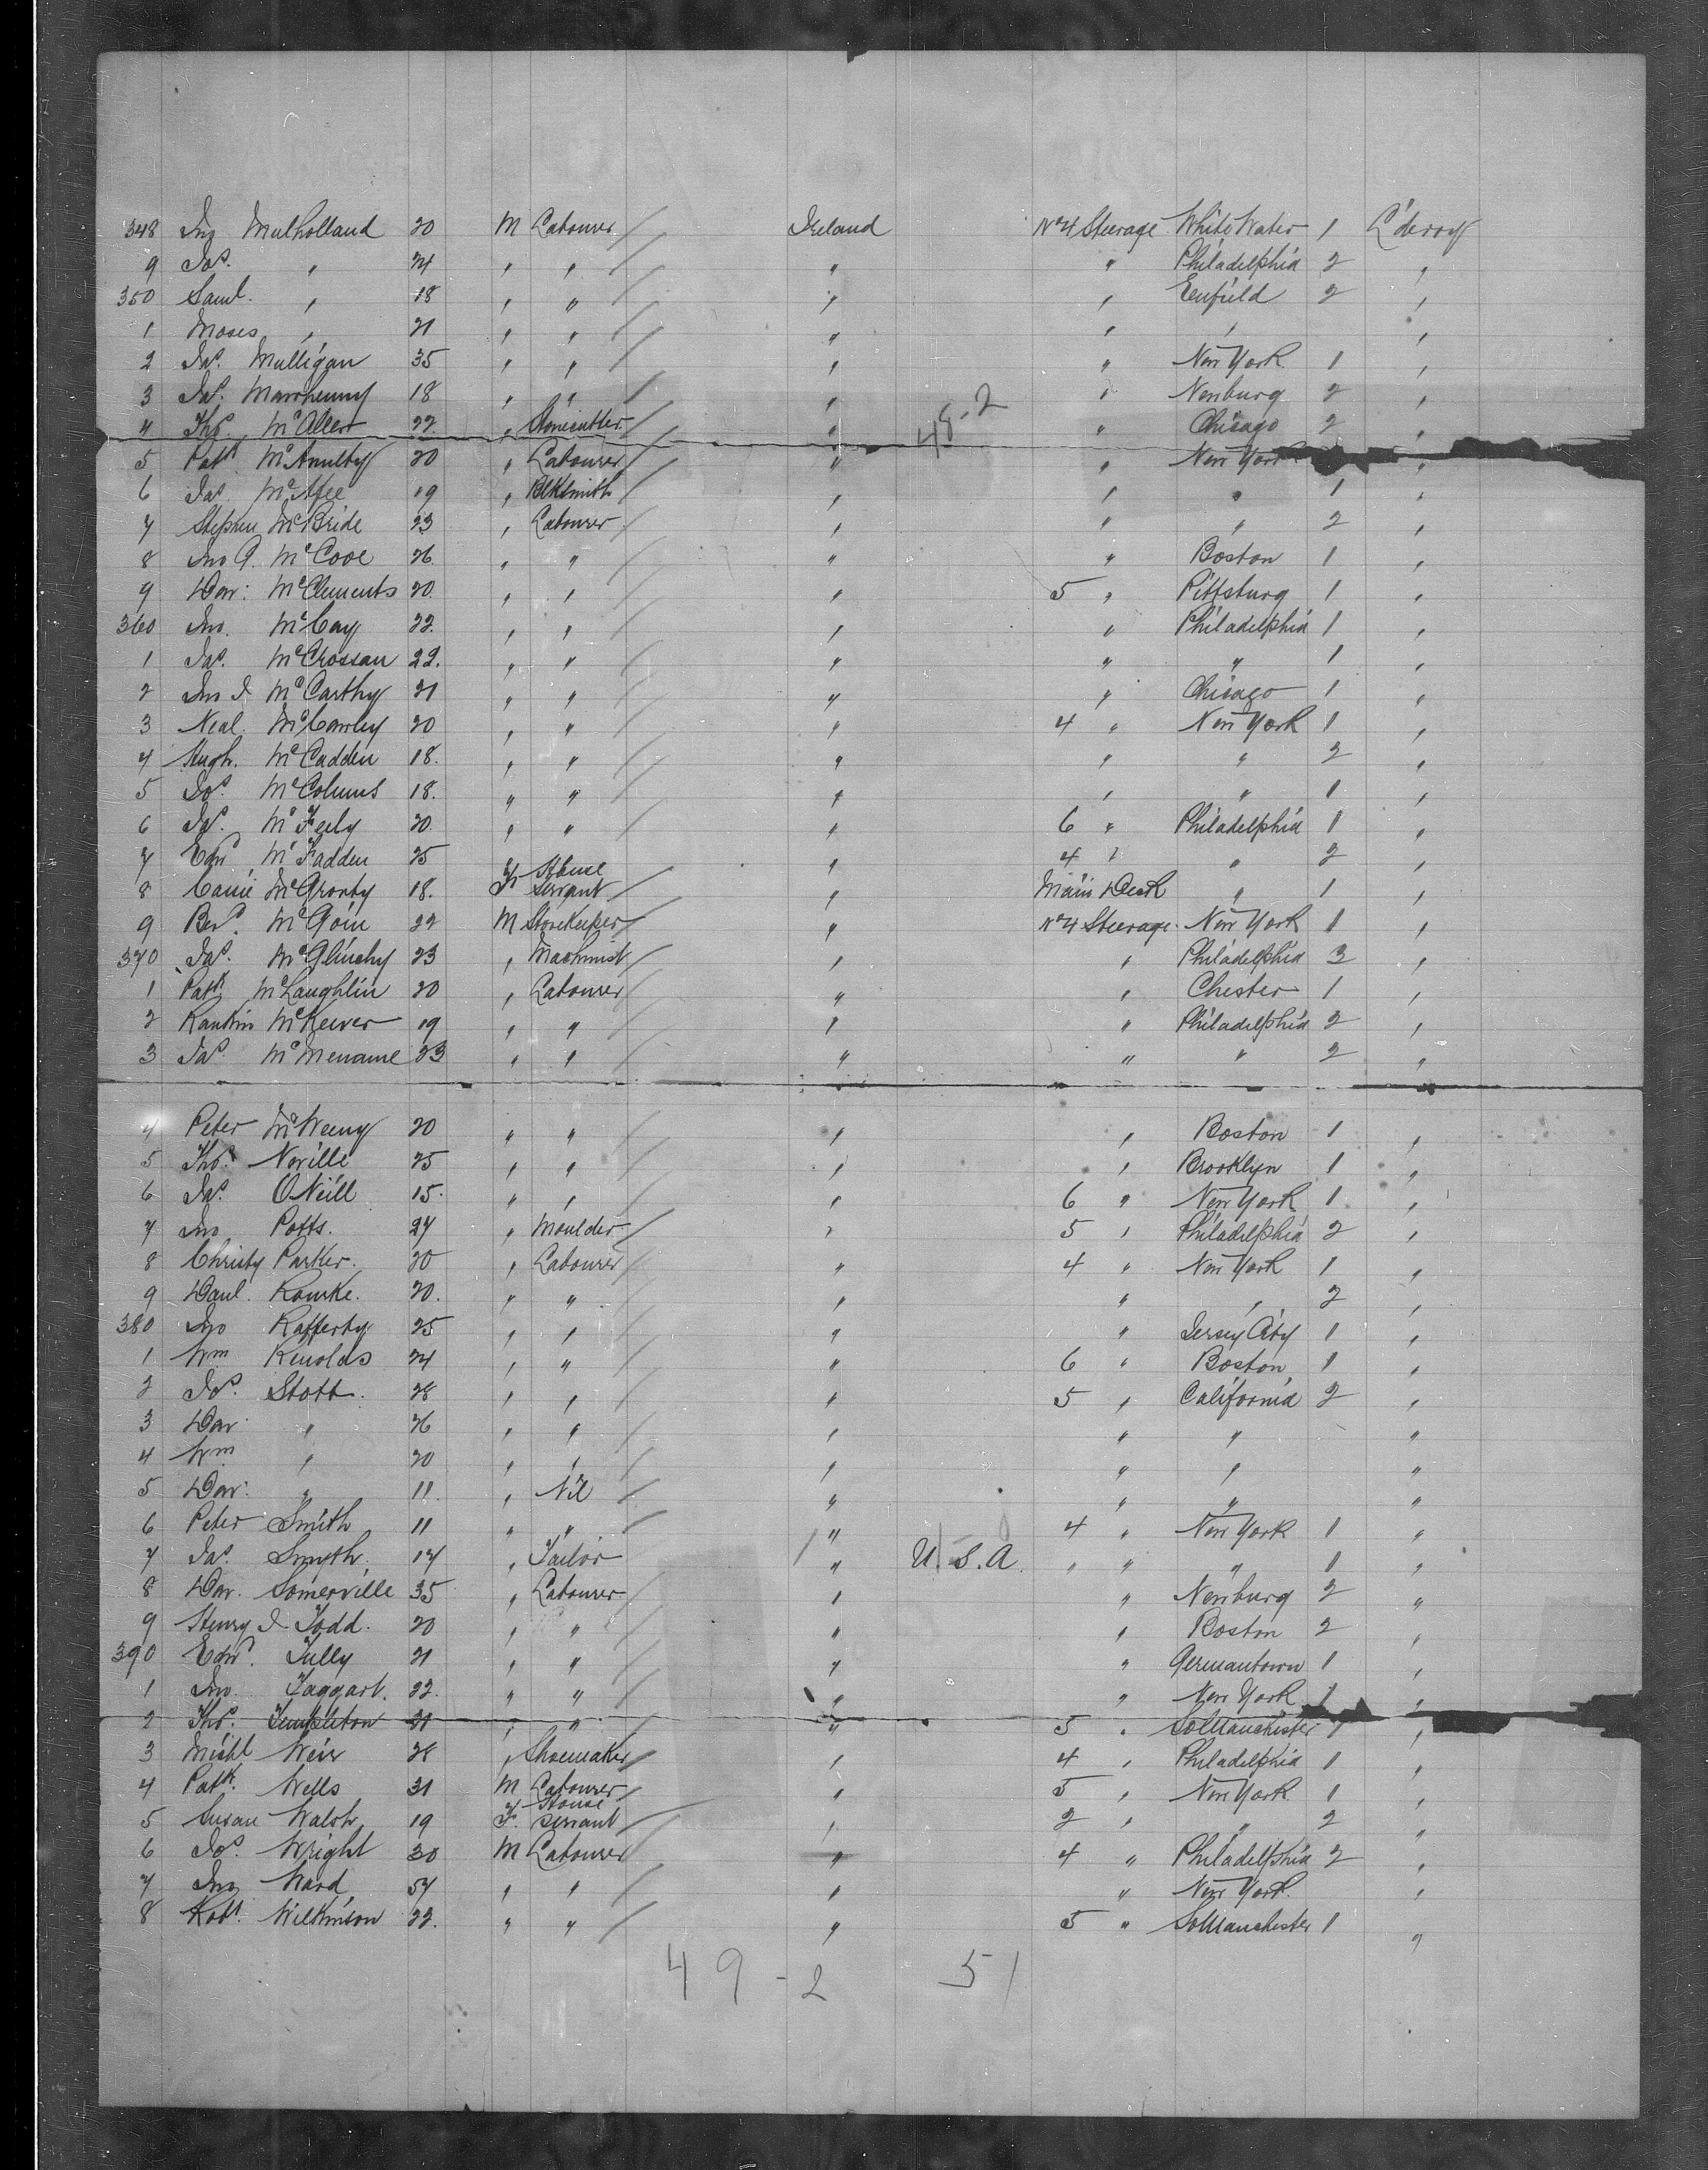 348 Jno Mulholland 20 M Labourer / Ireland No 4 Steerage White Water 1 L'derry
9 Jas. " 24 " " / " " Philadelphia 2 "
350 Saml. " 18 " " / " " Enfield 2 "
1 Moses " 21 " " / " " " "
2 Jas. Mulligan 35 " " / " " New York 1 "
3 Jas. 18 " " / " " Newburg 2 "
48-2
4 Thos. McAleer 22 " Stonecutter / " " Chicago 2 "
5 Patk McAnulty 20 " Labourer / " " New York "
6 Jas McAfee 19 " Blksmith / " " " 1 "
7 Stephen McBride 23 " Labourer / " " " 2 "
8 Jno A. McCooe 26 " " / " " Boston 1 "
9 Dav: McClements 20 " " / " 5 " Pittsburg 1 "
360 Jno. McCay 22 " " / " " Philadelphia 1 "
1 Jas. McCrossan 22. " " / " " " 1 "
2 Jno J McCarthy 21 " " / " " Chicago 1 "
3 Neal. McCawley 20 " " / " 4 " New York 1 "
4 Hugh. McCadden 18. " " / " " " 2 "
5 Jos. 18. " " / " " " 1 "
6 Jas. McFeely 20 " " / " 6 " Philadelphia 1 "
7 Edwd McFadden 25 / " 4 " " 2 "
8 Cassie McGrorty 18. F House Servant / " Main Deck " 1 "
9 Berd. McGoin 22 M Storekeeper / " No 4 Steerage New York 1 "
370 Jas. McGlinchy 23 " Machinist / " " Philadelphia 3 "
1 Patk McLaughlin 20 " Labourer / " " Chester 1 "
2 Rankin McKeever 19 " " / " " Philadelphia 2 "
3 Jas. McMename 23 " " / " " " 2 "
4 Peter McWeeny 20 " " / " " Boston 1 "
5 Thos. Noville 25 " " / " " Brooklyn 1 "
6 Jas. O'Neill 15. " " / " 6 " New York 1 "
7 Jno Potts. 27 " Moulder / " 5 " Philadelphia 2 "
8 Christy Parker. 20 " Labourer / " 4 " New York 1 "
9 Danl. Rourke. 20. " " / " " " 2 "
380 Jno Rafferty 25 " " / " " Jersey City 1 "
1 Wm Renolds 24 " " / " 6 " Boston 1 "
2 Jos. Stott. 28 " " / " 5 " California 2 "
3 Dav " 26 " " / " " " "
4 Wm " 20 " " / " " " "
5 Dav: " 11. " Nil / " " " "
6 Peter Smith 11 " " / " 4 " New York 1 "
7 Jas. Smyth. 17 " Tailor / " U.S.A. " " " 1 "
8 Dav. Somerville 35 " Labourer " " Newburg 2 "
9 Henry J Todd. 20 " " / " " Boston 2 "
390 Edwd. Tully 21 " " / " " Germantown 1 "
1 Jno. Taggart. 22. " " / " " New York 1 "
2 Thos. Templeton 21 " " " 5 " So Manchester 1 "
3 Michl Weir 28 " Shoemaker / " 4 " Philadelphia 1 "
4 Patk. Wells 31 M Labourer / " 5 " New York 1 "
5 Susan Walsh 19 F. House Servant / " 2 " " 2 "
6 Jos. Wright 30 M Labourer / " 4 " Philadelphia 2 "
7 Jno Ward 57 " " / " " New York. "
8 Robt. Wilkinson 22. " " / " 5 " So Manchester 1 "
49-2 51